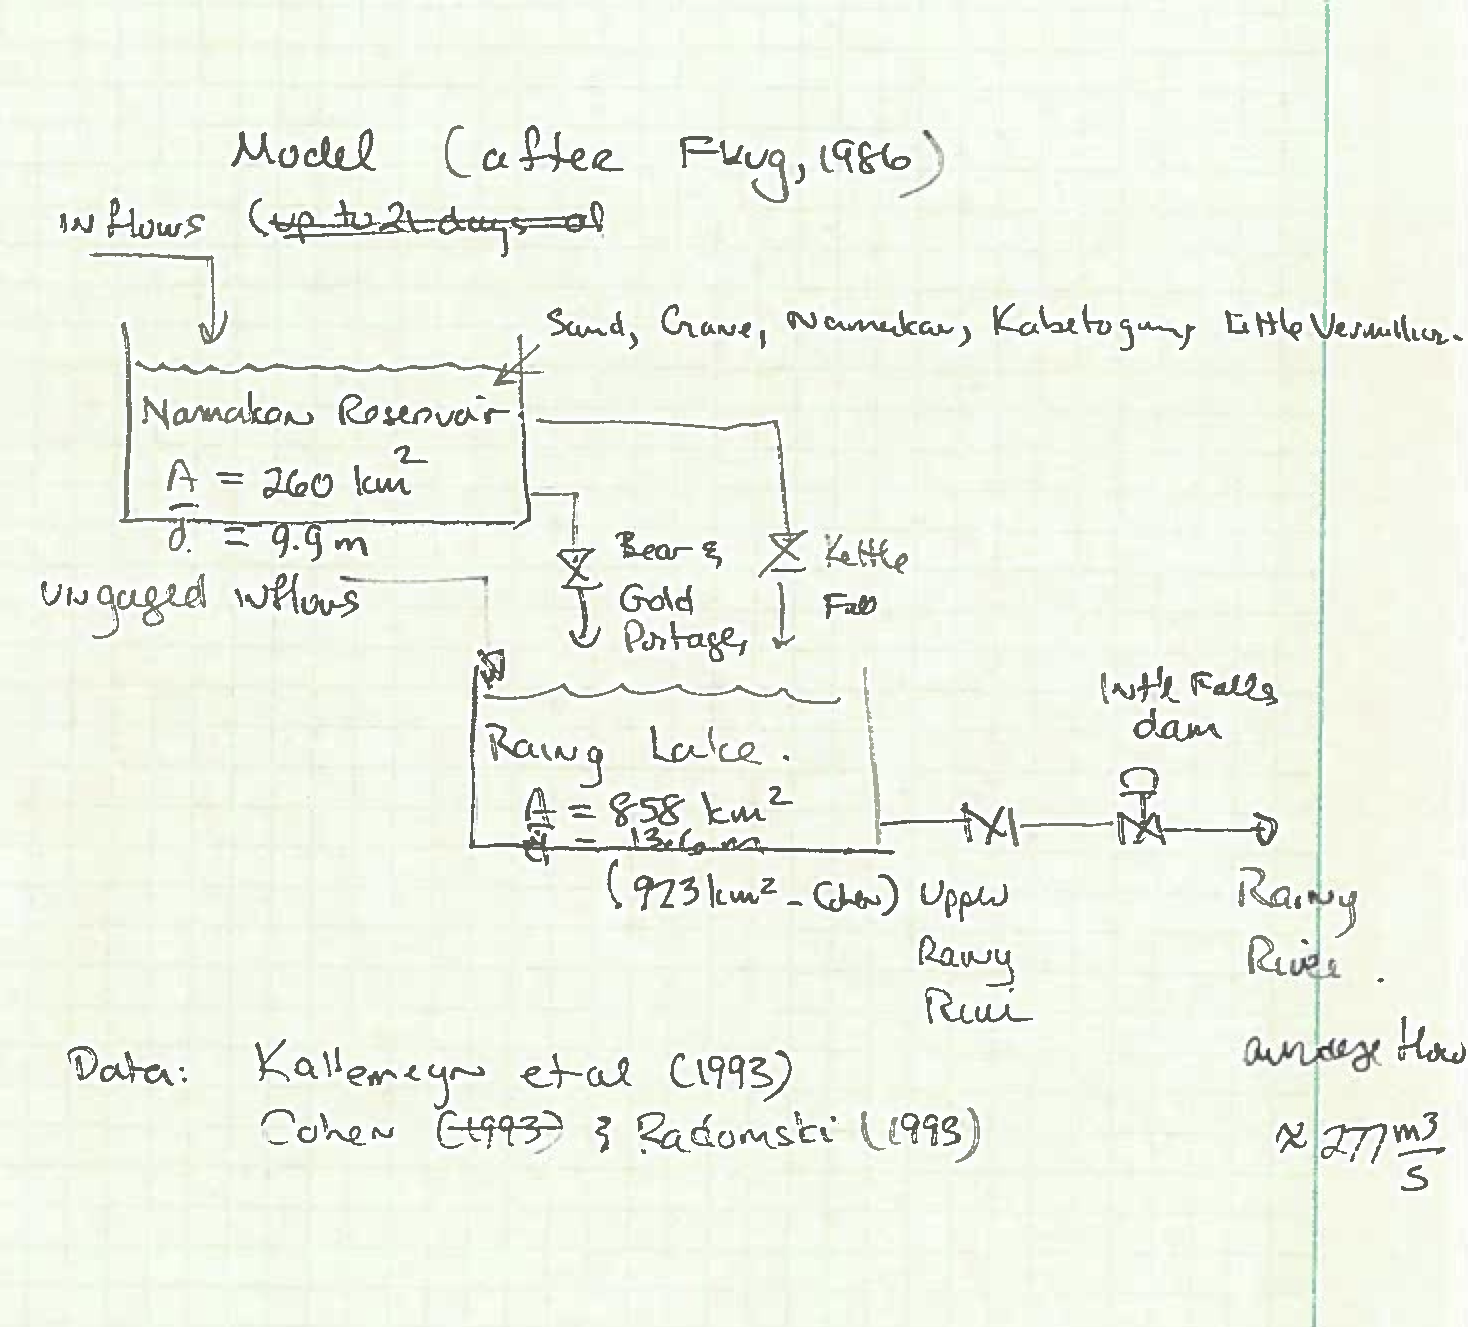 Model (after Flug, 1986)
Inflows (up to 21 days of
Sand, Crane, Namakan, Kabetogama, Little Vermilion.
Namakan Reservoir
A = 260 km²
d = 9.9 m
Ungaged inflows
Bear &
Gold
Portages
Kettle
Fall
Rainy Lake.
A = 858 km²
d = 13.6 m
(923 km² - Cohen)
Upper
Rainy
River
Int'l Falls
dam
Rainy
River.
average flow
≈ 277 m³/s
Data: Kallemeyn et al (1993)
Cohen (1993) & Radomski (1993)